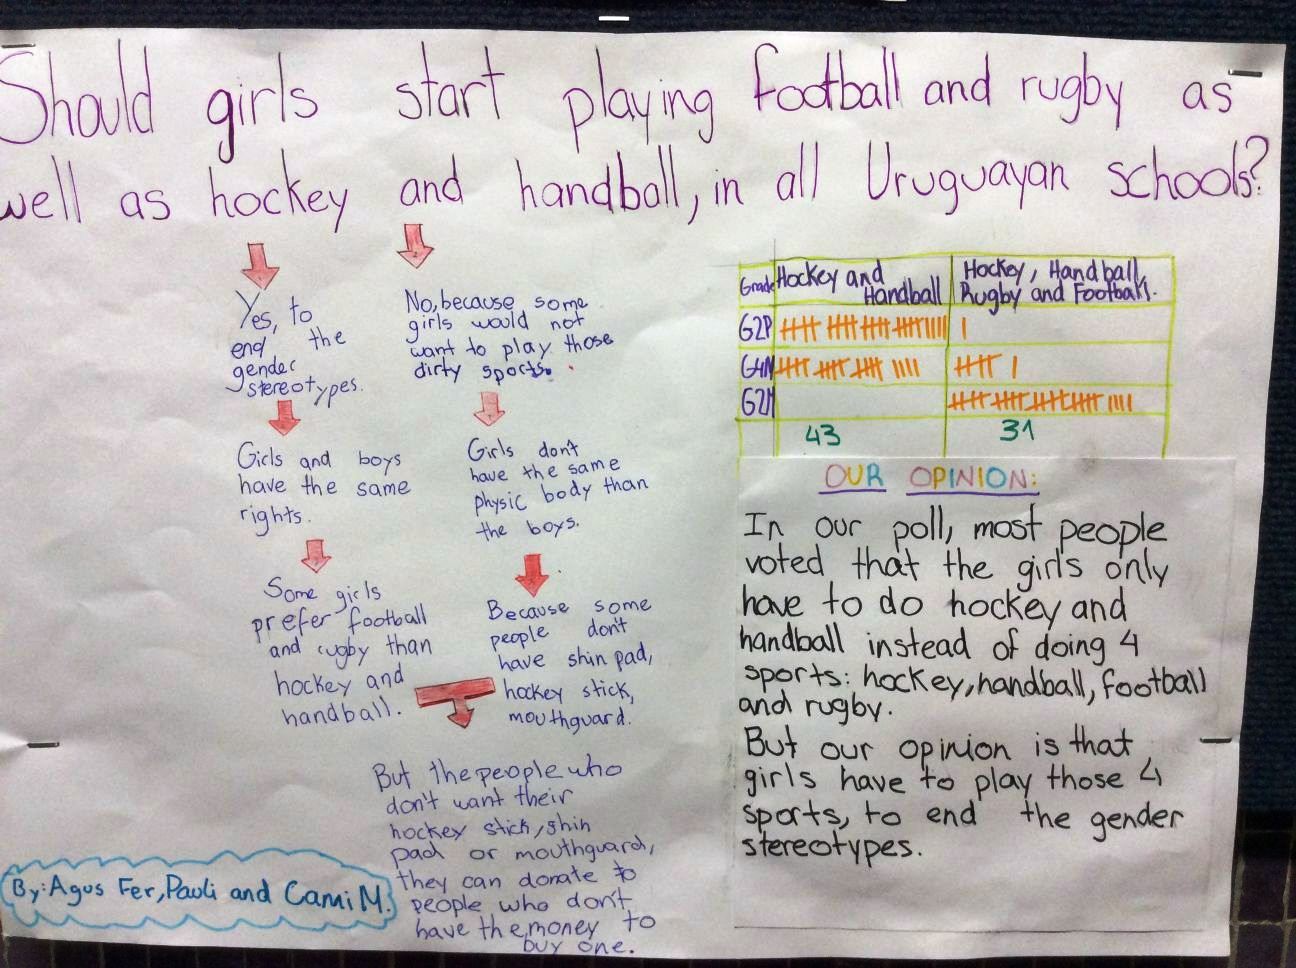 Should girls start playing football and rugby as
well as hockey and handball, in all Uruguayan schools?
Yes, to
end the
gender
stereotypes.
Girls and boys
have the same
rights.
Some girls
prefer football
and rugby than
hockey and
handball.
No, because some
girls would not
want to play those
dirty sports.
Girls don't
have the same
physic body than
the boys.
Because some
people don't
have shin pad,
hockey stick,
mouthguard.
But the people who
don't want their
hockey stick, shin
pad or mouthguard,
they can donate to
people who don't
have the money to
buy one.
By: Agus Fer, Pauli and Cami M.
Grade Hockey and Handball Hockey, Handball, Rugby and Football.
G2P
G4M
G2M
43 31
OUR OPINION:
In our poll, most people
voted that the girls only
have to do hockey and
handball instead of doing 4
sports: hockey, handball, football
and rugby.
But our opinion is that
girls have to play those 4
sports, to end the gender
stereotypes.